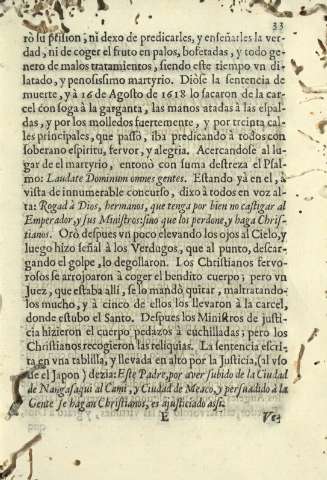 33
rò su prision, ni dexo de predicarles, y enseñarles la ver-
dad, ni de coger el fruto en palos, bofetadas, y todo ge-
nero de malos tratamientos, siendo este tiempo vn di-
latado, y penosissimo martyrio. Diòse la sentencia de
muerte, y à 16 de Agosto de 1618 lo sacaron de la car-
cel con soga à la garganta, las manos atadas à las espal-
das, y por los molledos fuertemente, y por treinta ca-
lles principales, que passò, iba predicando à todos con
soberano espiritu, fervor, y alegria. Acercandose al lu-
gar de el martyrio, entonò con suma destreza el Psal-
mo: Laudate Dominum omnes gentes. Estando yà en el, à
vista de innumerable concurso, dixo à todos en voz al-
ta: Rogad à Dios, hermanos, que tenga por bien no castigar al
Emperador, y sus Ministros: sino que los perdone, y haga Chris-
tianos. Orò despues vn poco elevando los ojos al Cielo, y
luego hizo señal à los Verdugos, que al punto, descar-
gando el golpe, lo degollaron. Los Christianos fervo-
rosos se arrojaron à coger el bendito cuerpo; pero vn
Juez, que estaba alli, se lo mandò quitar, maltratando-
los mucho, y à cinco de ellos los llevaron à la carcel,
donde estubo el Santo. Despues los Ministros de justi-
cia hizieron el cuerpo pedazos à cuchilladas; pero los
Christianos recogieron las reliquias. La sentencia escri-
ta en vna tablilla, y llevada en alto por la Justicia, (al vso
de el Japon) dezia: Este Padre, por aver subido de la Ciudad
de Nangasaqui al Cami, y Ciudad de Meaco, y persuadido à la
Gente se hagan Christianos, es ajusticiado assi.
E